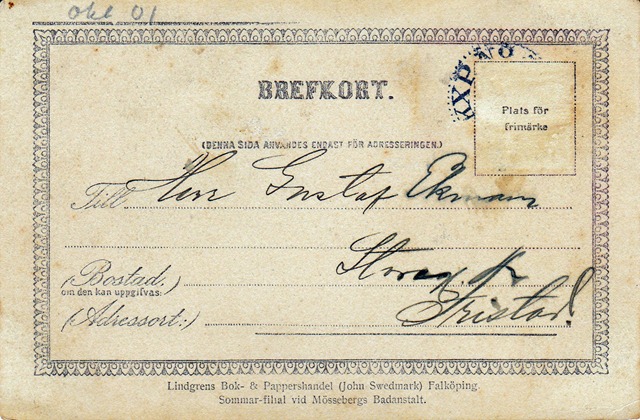 Okt 01
BREFKORT.
PXP No
Plats för
frimärke
(DENNA SIDA ANVÄNDES ENDAST FÖR ADRESSERINGEN.)
Till Herr Gustaf Ekman
(Bostad.)
om den kan uppgifvas:
(Adressort:)
Lindgrens Bok- & Pappershandel (John Swedmark) Falköping.
Sommar-filial vid Mössebergs Badanstalt.